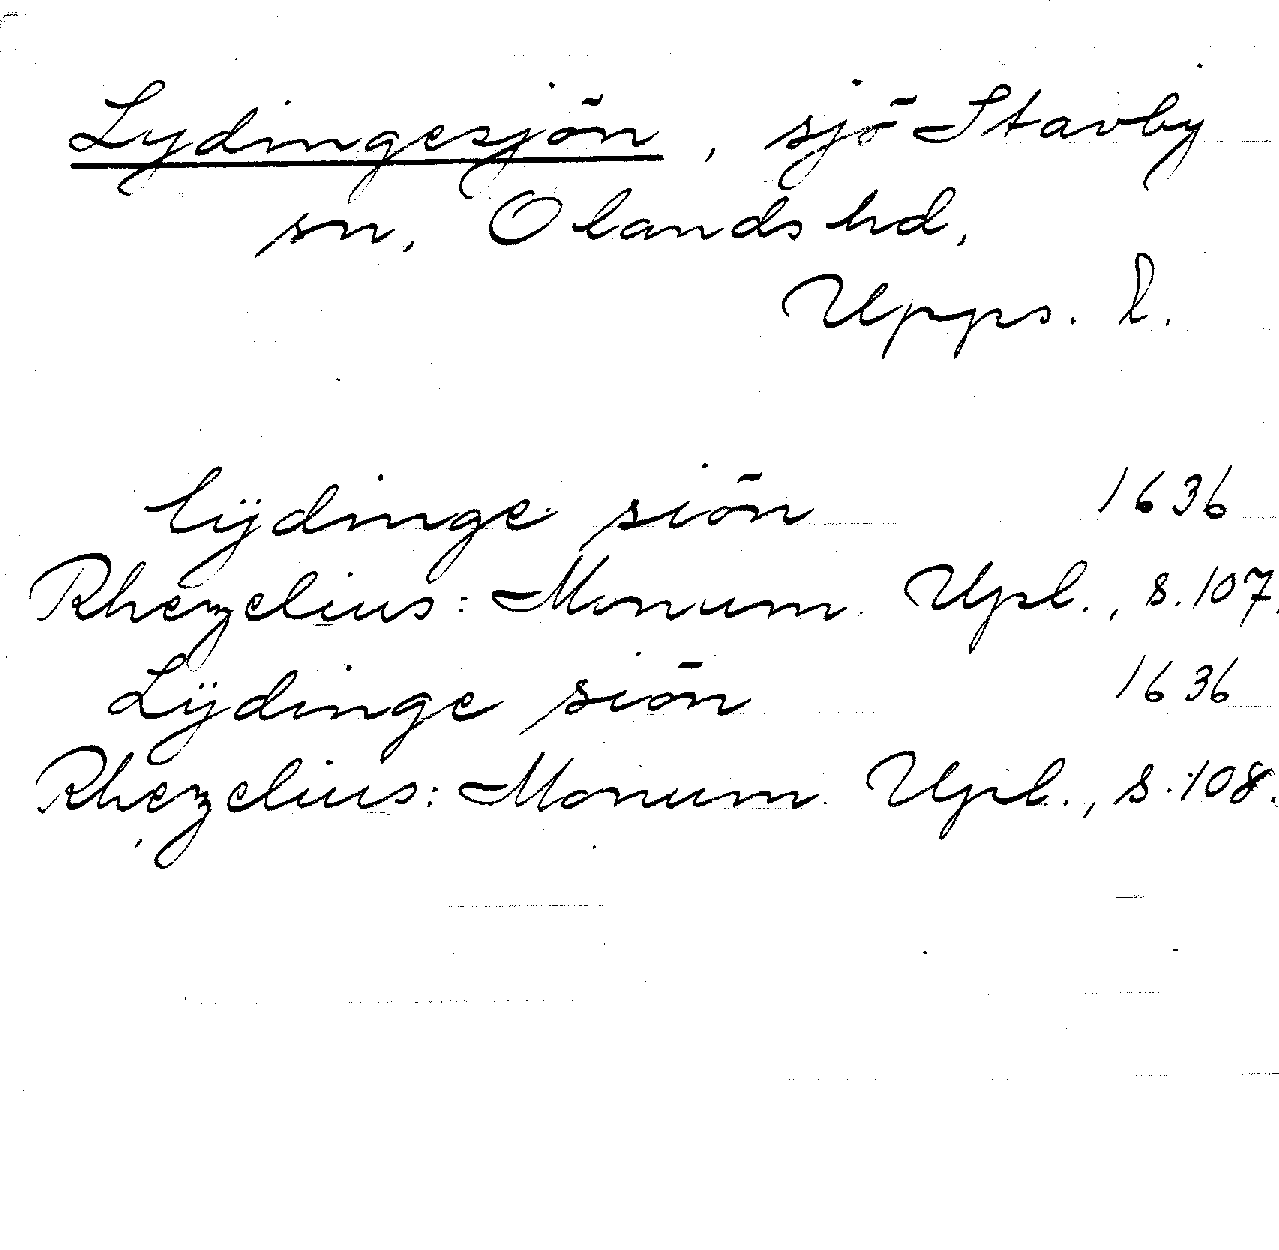 Lydingesjön, sjö Stavby
sn, Olands hd,
Upps. l.
lÿdinge siön 1636
Rhezelius: Monum. Upl., s. 107.
Lÿdinge siön 1636
Rhezelius: Monum. Upl., s. 108.